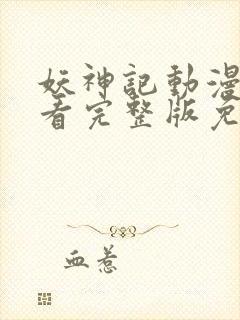 妖神記動漫
看完整版免
血惹